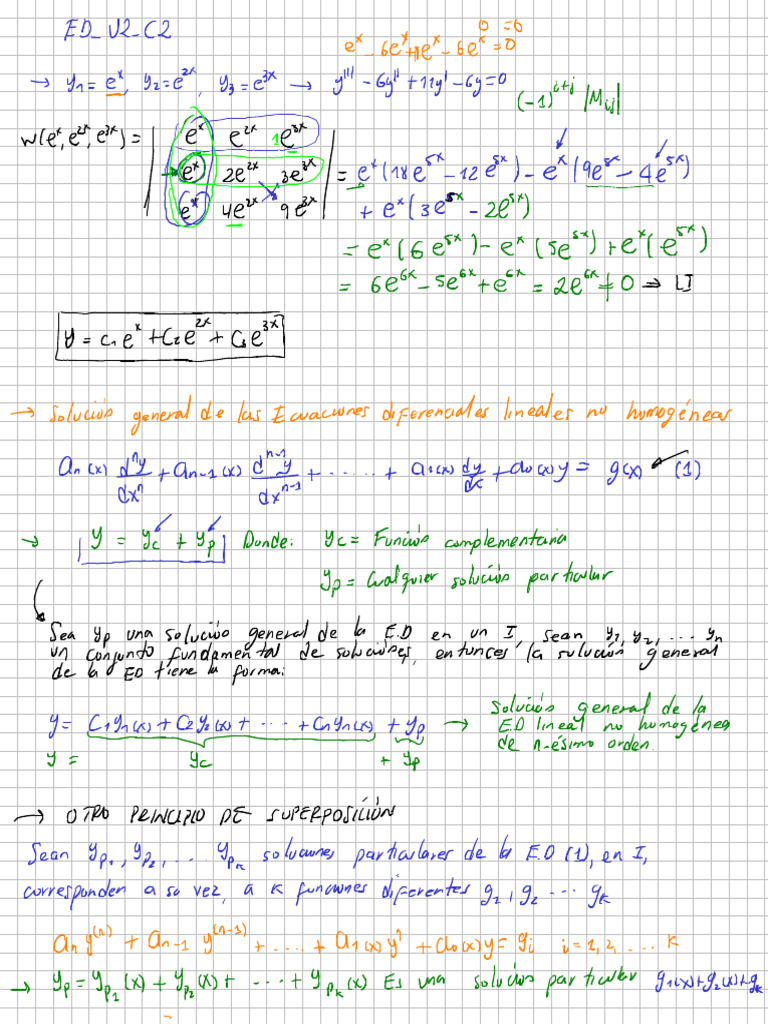 ED_U2_C2
0 = 0
e^x - 6e^x + 11e^x - 6e^x = 0
→ y1 = e^x, y2 = e^2x, y3 = e^3x → y''' - 6y'' + 11y' - 6y = 0
(-1)^i+j |Mij|
W(e^x, e^2x, e^3x) = | e^x e^2x 1e^3x |
| e^x 2e^2x 3e^3x | = e^x(18e^5x - 12e^5x) - e^x(9e^5x - 4e^5x)
| e^x 4e^2x 9e^3x | + e^x(3e^5x - 2e^5x)
= e^x(6e^5x) - e^x(5e^5x) + e^x(e^5x)
= 6e^6x - 5e^6x + e^6x = 2e^6x ≠ 0 ⇒ LI
y = c1e^x + c2e^2x + c3e^3x
→ Solución general de las Ecuaciones diferenciales lineales no homogéneas
an(x) d^n y/dx^n + an-1(x) d^n-1 y/dx^n-1 + ..... + a1(x) dy/dx + a0(x)y = g(x) (1)
→ y = yc + yp Donde: yc = Función complementaria
yp = Cualquier solución particular
Sea yp una solución general de la E.D en un I, sean y1, y2, ... yn
un conjunto fundamental de soluciones, entonces la solución general
de la ED tiene la forma:
y = C1y1(x) + C2y2(x) + ... + Cnyn(x) + yp → Solución general de la
E.D lineal no homogénea
de n-ésimo orden.
y = yc + yp
→ OTRO PRINCIPIO DE SUPERPOSICIÓN
Sean yp1, yp2, ... ypk soluciones particulares de la E.D (1), en I,
corresponden a su vez, a k funciones diferentes g1, g2 ... gk
an y^(n) + an-1 y^(n-1) + .... + a1(x)y' + a0(x)y = gi i = 1, 2, ... k
→ yp = yp1(x) + yp2(x) + ... + ypk(x) Es una solución particular g1(x)+g2(x)+gk